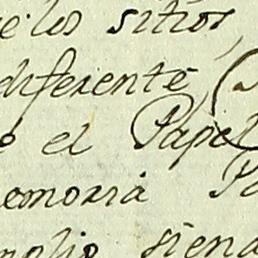 e los sitios,
diferente, (
o el Papel
emoria Pa
mplio siend